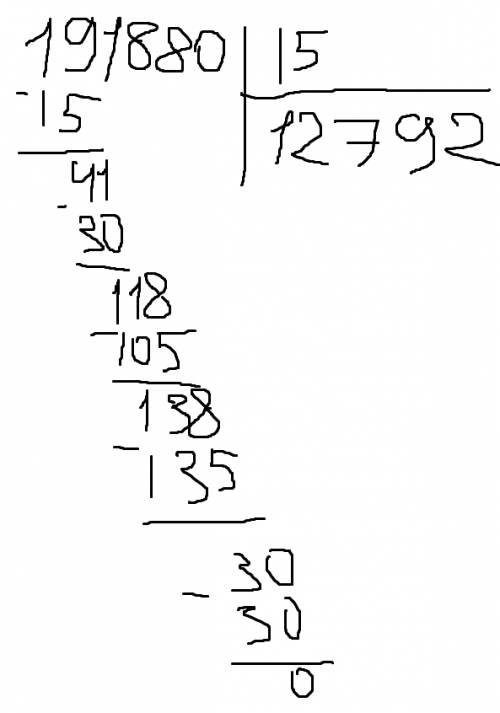 191880 15
-15 12792
41
-
30
118
-
105
138
-
135
30
-
30
0